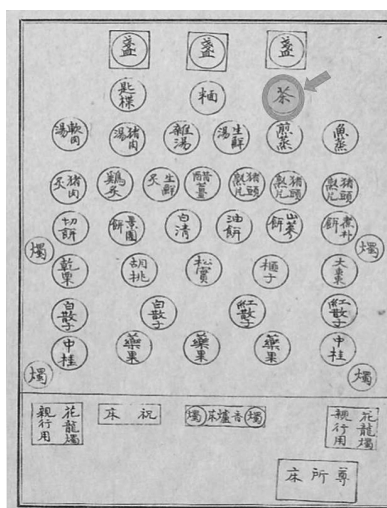 盞 盞 盞
匙楪 麪 茶
軟肉湯 猪肉湯 雜湯 生鮮湯 煎蒸 魚蒸
猪肉炙 鷄炙 生鮮炙 醋薑 猪頭熟片 猪頭熟片
切餅 景團餅 白清 油餅 山蔘餅 煮朴餅
燭 燭
乾栗 胡桃 松實 榧子 大棗
白散子 白散子 紅散子 紅散子
中桂 藥果 藥果 藥果 中桂
燭 燭
花龍燭
親行用
祝床
燭 香爐床 燭
花龍燭
親行用
尊所床